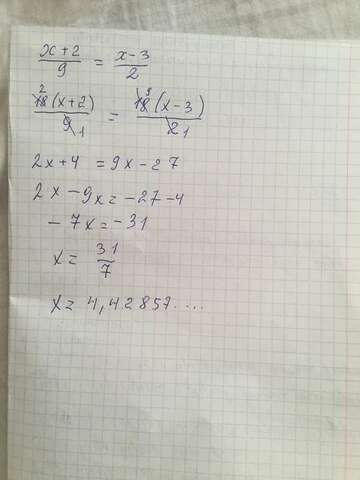 x+2/9 = x-3/2
18(x+2)/9 = 18(x-3)/2
2x+4 = 9x-27
2x-9x=-27-4
-7x=-31
x= 31/7
x= 4,42857....